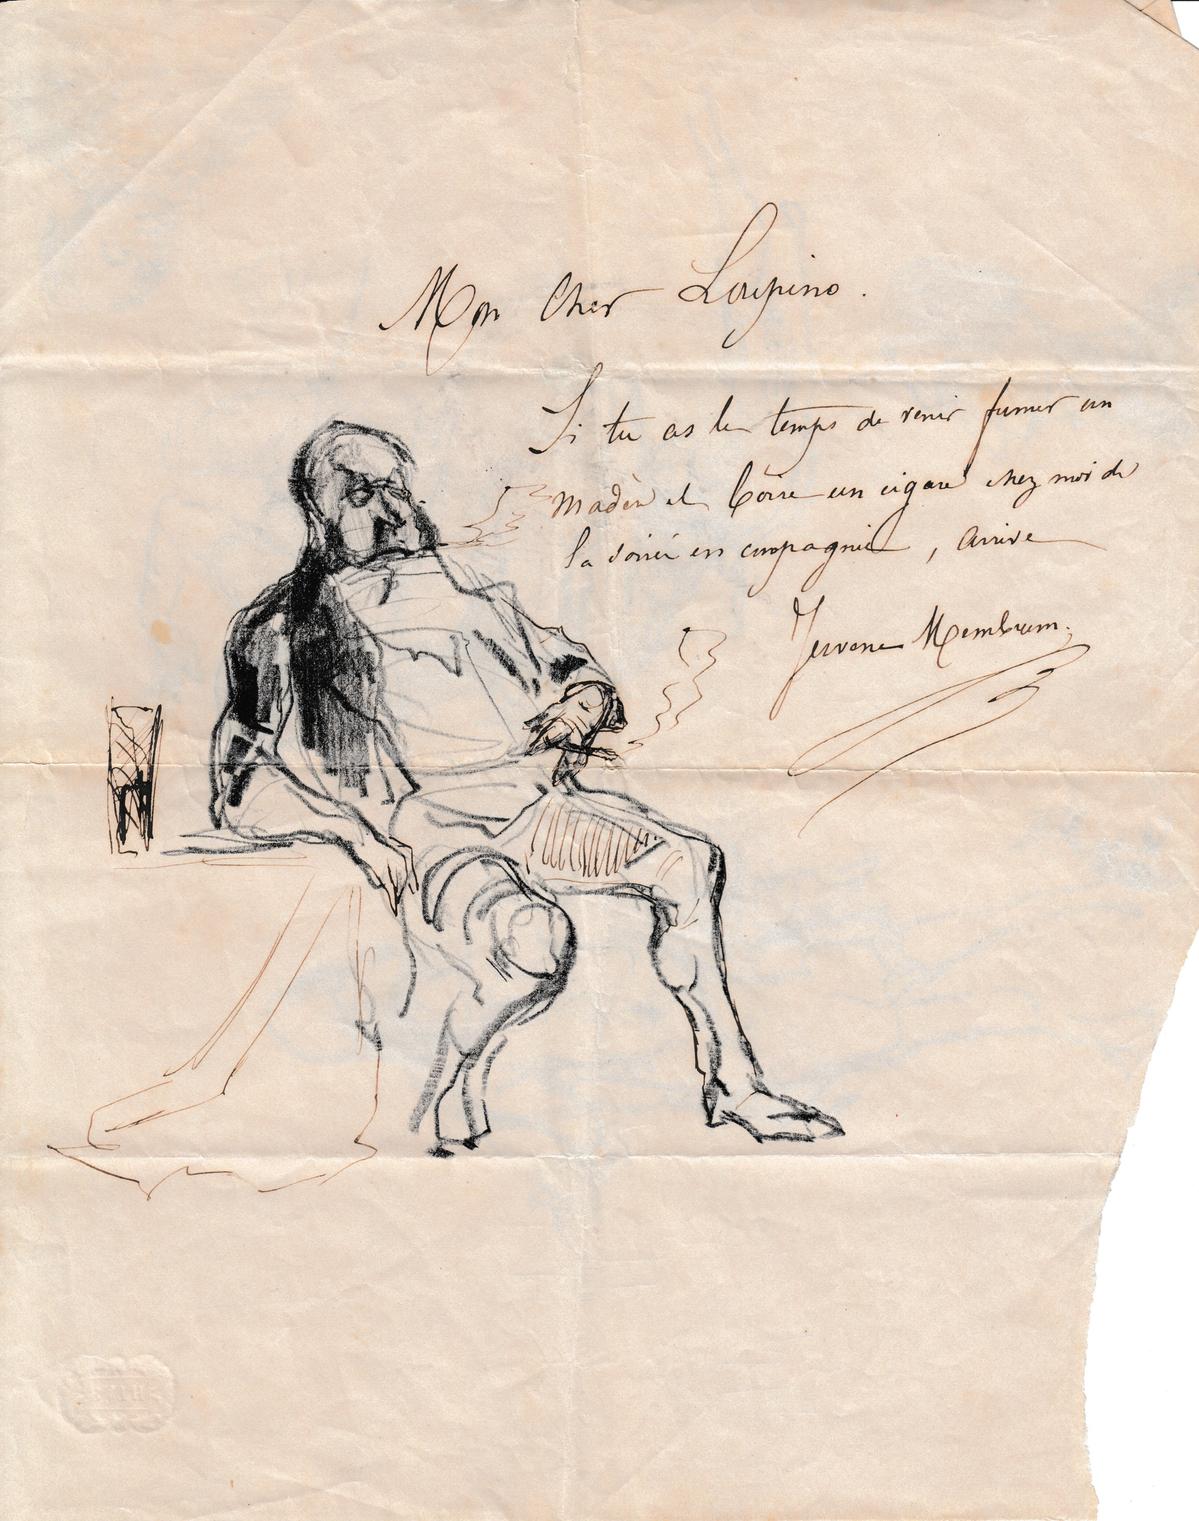 Mon Cher Loupino.
Si tu as le temps de venir fumer un
madère et boire un cigare chez moi de
la soirée en compagnie, arrive
Membrum.